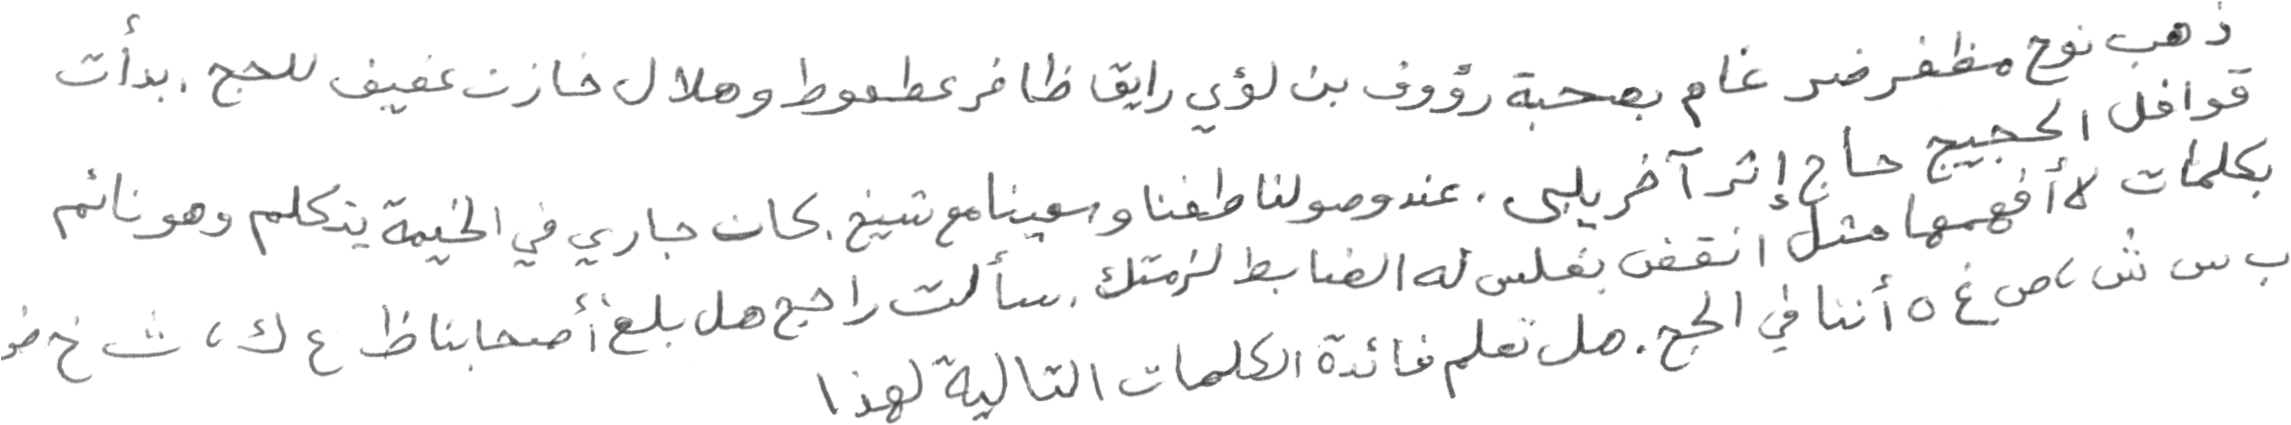 ذهب نوح مظفر ضر غام بصحبة رؤوف بن لؤي رايق ظافر عطعوط وهلال خازن عفيف للحج . بدأت
قوافل الحجيج حاج إثر آخر يلبي . عند وصولنا طفنا وسعينا مع شيخ . كان جاري في الخيمة يتكلم وهو نائم
بكلمات لا أفهمها مثل انقض بغلس له الضابط لزمتك . سألت راجح هل بلغ أصحابنا ظ ع ك ، ث خ ض
ب س ش ، ص غ ه أننا في الحج . هل تعلم فائدة الكلمات التالية لهذا